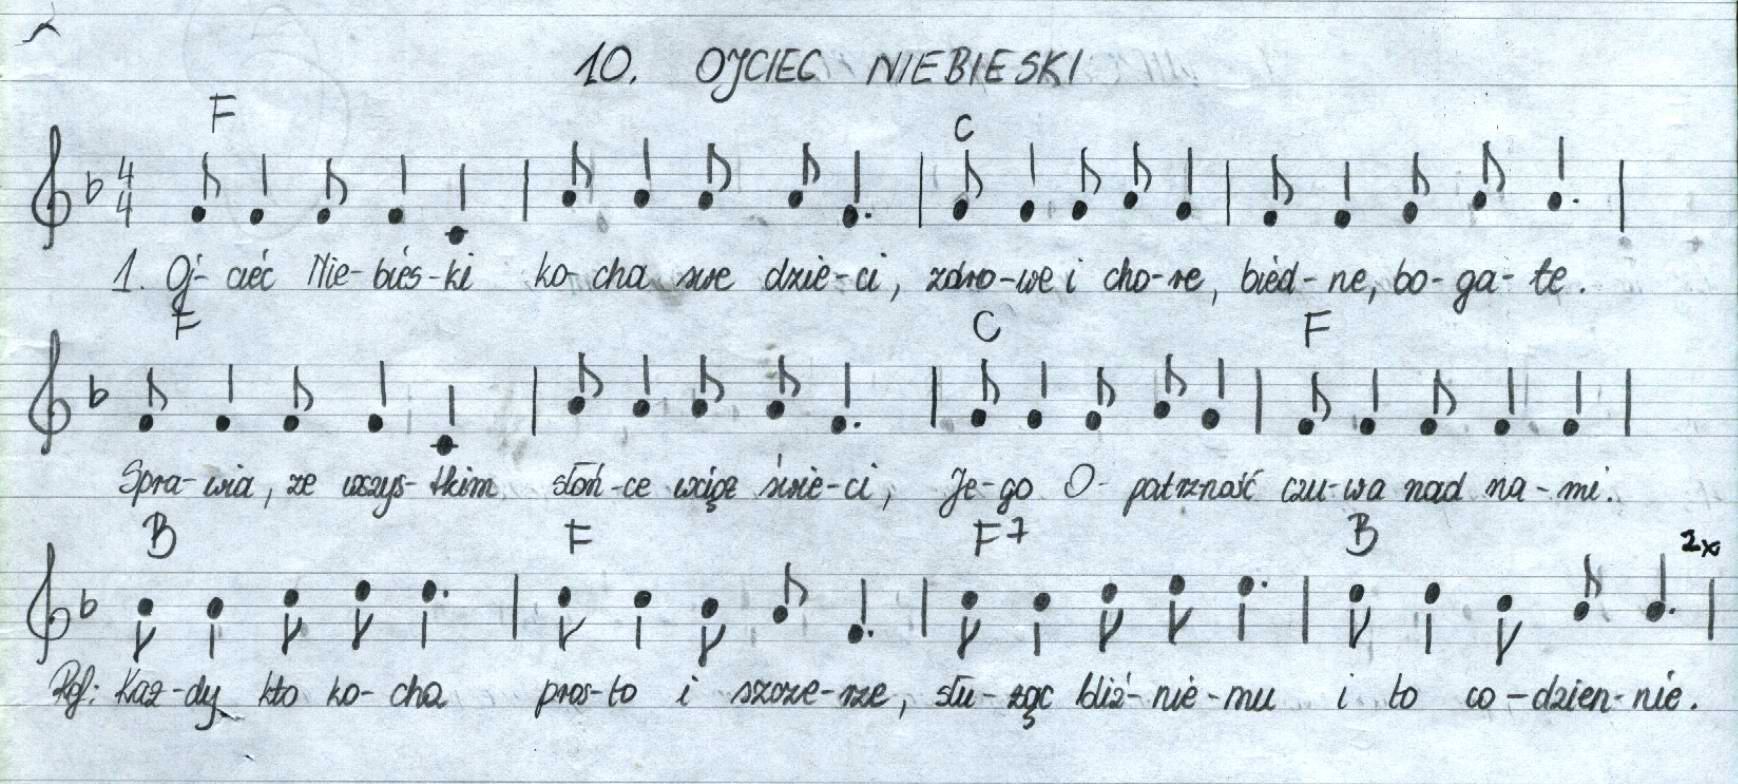 10. OJCIEC NIEBIESKI
F C
4
4
1. Oj- ciec Nie- bies- ki ko- cha swe dzie- ci, zdro- we i cho- re, bied- ne, bo- ga- te.
F C F
Spra- wia, że wszys- tkim słoń- ce wciąż świe- ci, Je- go O- patrzność czu- wa nad na- mi.
B F F7 B 2x
Ref: Każ- dy kto ko- cha pros- to i szcze- rze, słu- żąc bliź- nie- mu i to co- dzien- nie.